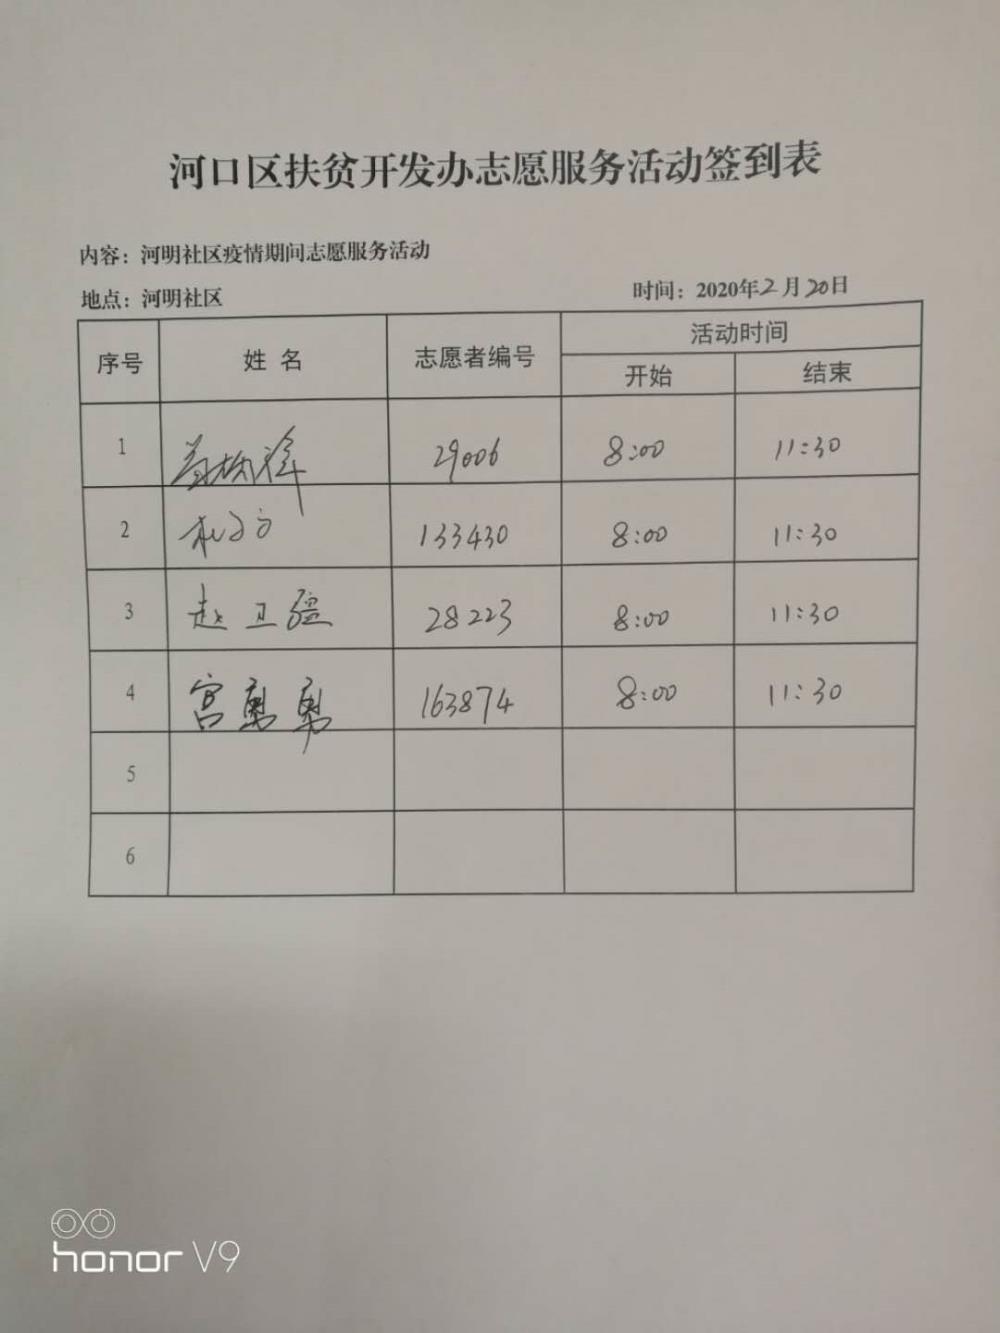 河口区扶贫开发办志愿服务活动签到表
内容：河明社区疫情期间志愿服务活动
地点：河明社区 时间：2020年2月20日
序号 姓名 志愿者编号 活动时间
开始 结束
1 29006 8:00 11:30
2 133430 8:00 11:30
3 赵卫疆 28223 8:00 11:30
4 宫勇勇 163874 8:00 11:30
5
6
honor V9